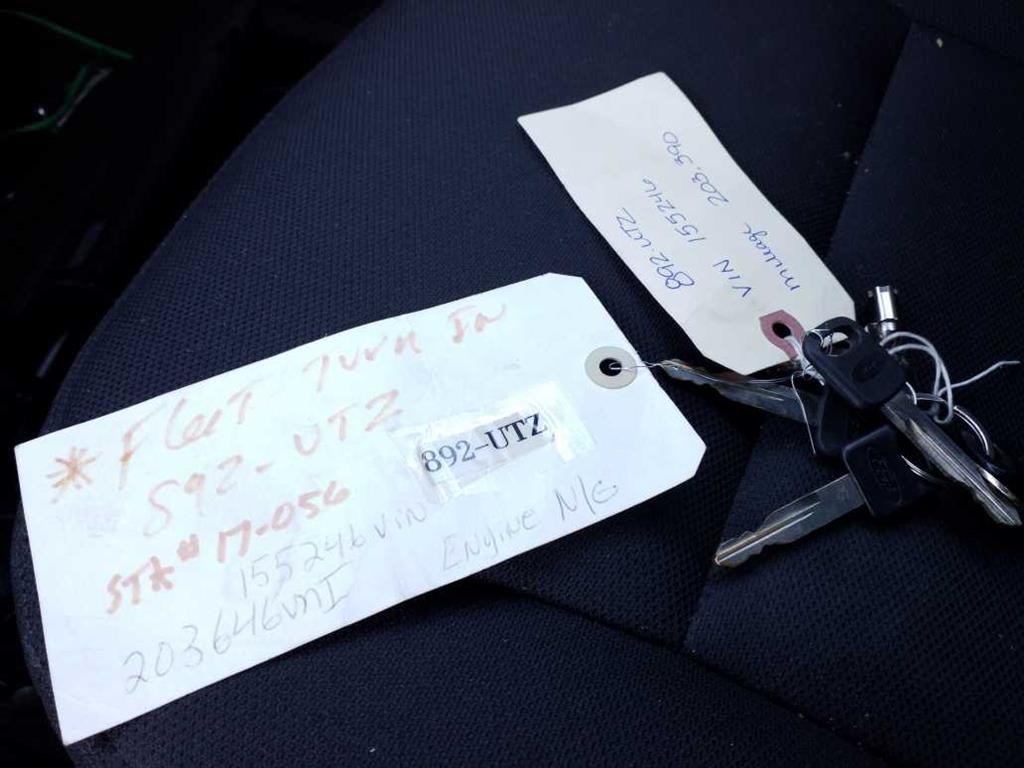 * Fleet Turn In
892-UTZ
892-UTZ
STK# 17-056
155246 VIN
Engine N/G
203646 MI
892.UTZ
VIN 155246
mileage 203.390